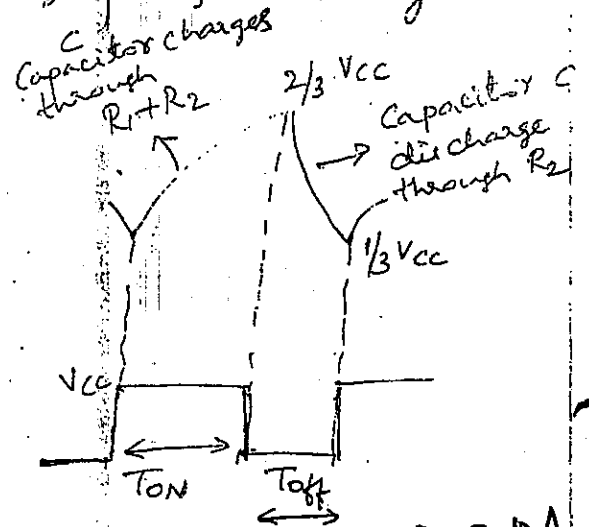 C
Capacitor charges
through
R1+R2
2/3 VCC
Capacitor C
discharge
through R2
1/3 VCC
VCC
TON
Toff